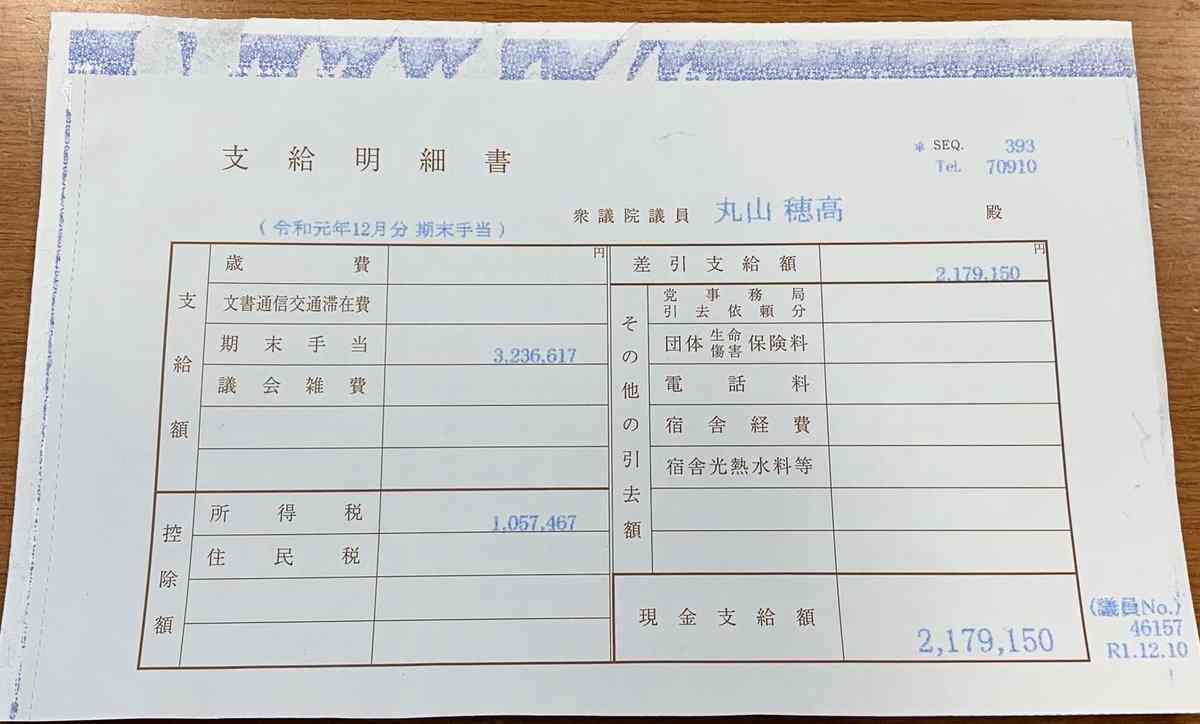 支給明細書
* SEQ. 393
Tel. 70910
衆議院議員 丸山 穂高 殿
(令和元年12月分 期末手当)
支給額
歳費 円
文書通信交通滞在費
期末手当 3,236,617
議会雑費
控除額
所得税 1,057,467
住民税
差引支給額 円 2,179,150
その他の引去額
党事務局
引去依頼分
団体生命傷害保険料
電話料
宿舎経費
宿舎光熱水料等
現金支給額 2,179,150
(議員No.)
46157
R1.12.10